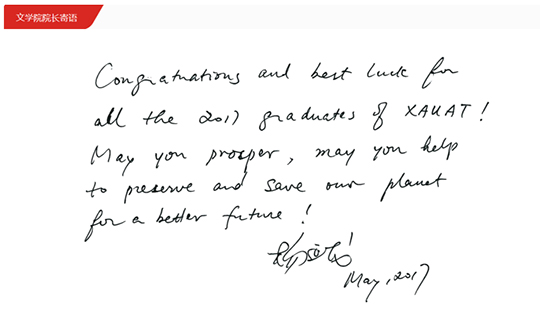 文学院院长寄语
Congratuations and best luck for
all the 2017 graduates of XAUAT!
May you prosper, may you help
to preserve and save our planet
for a better future!
May, 2017